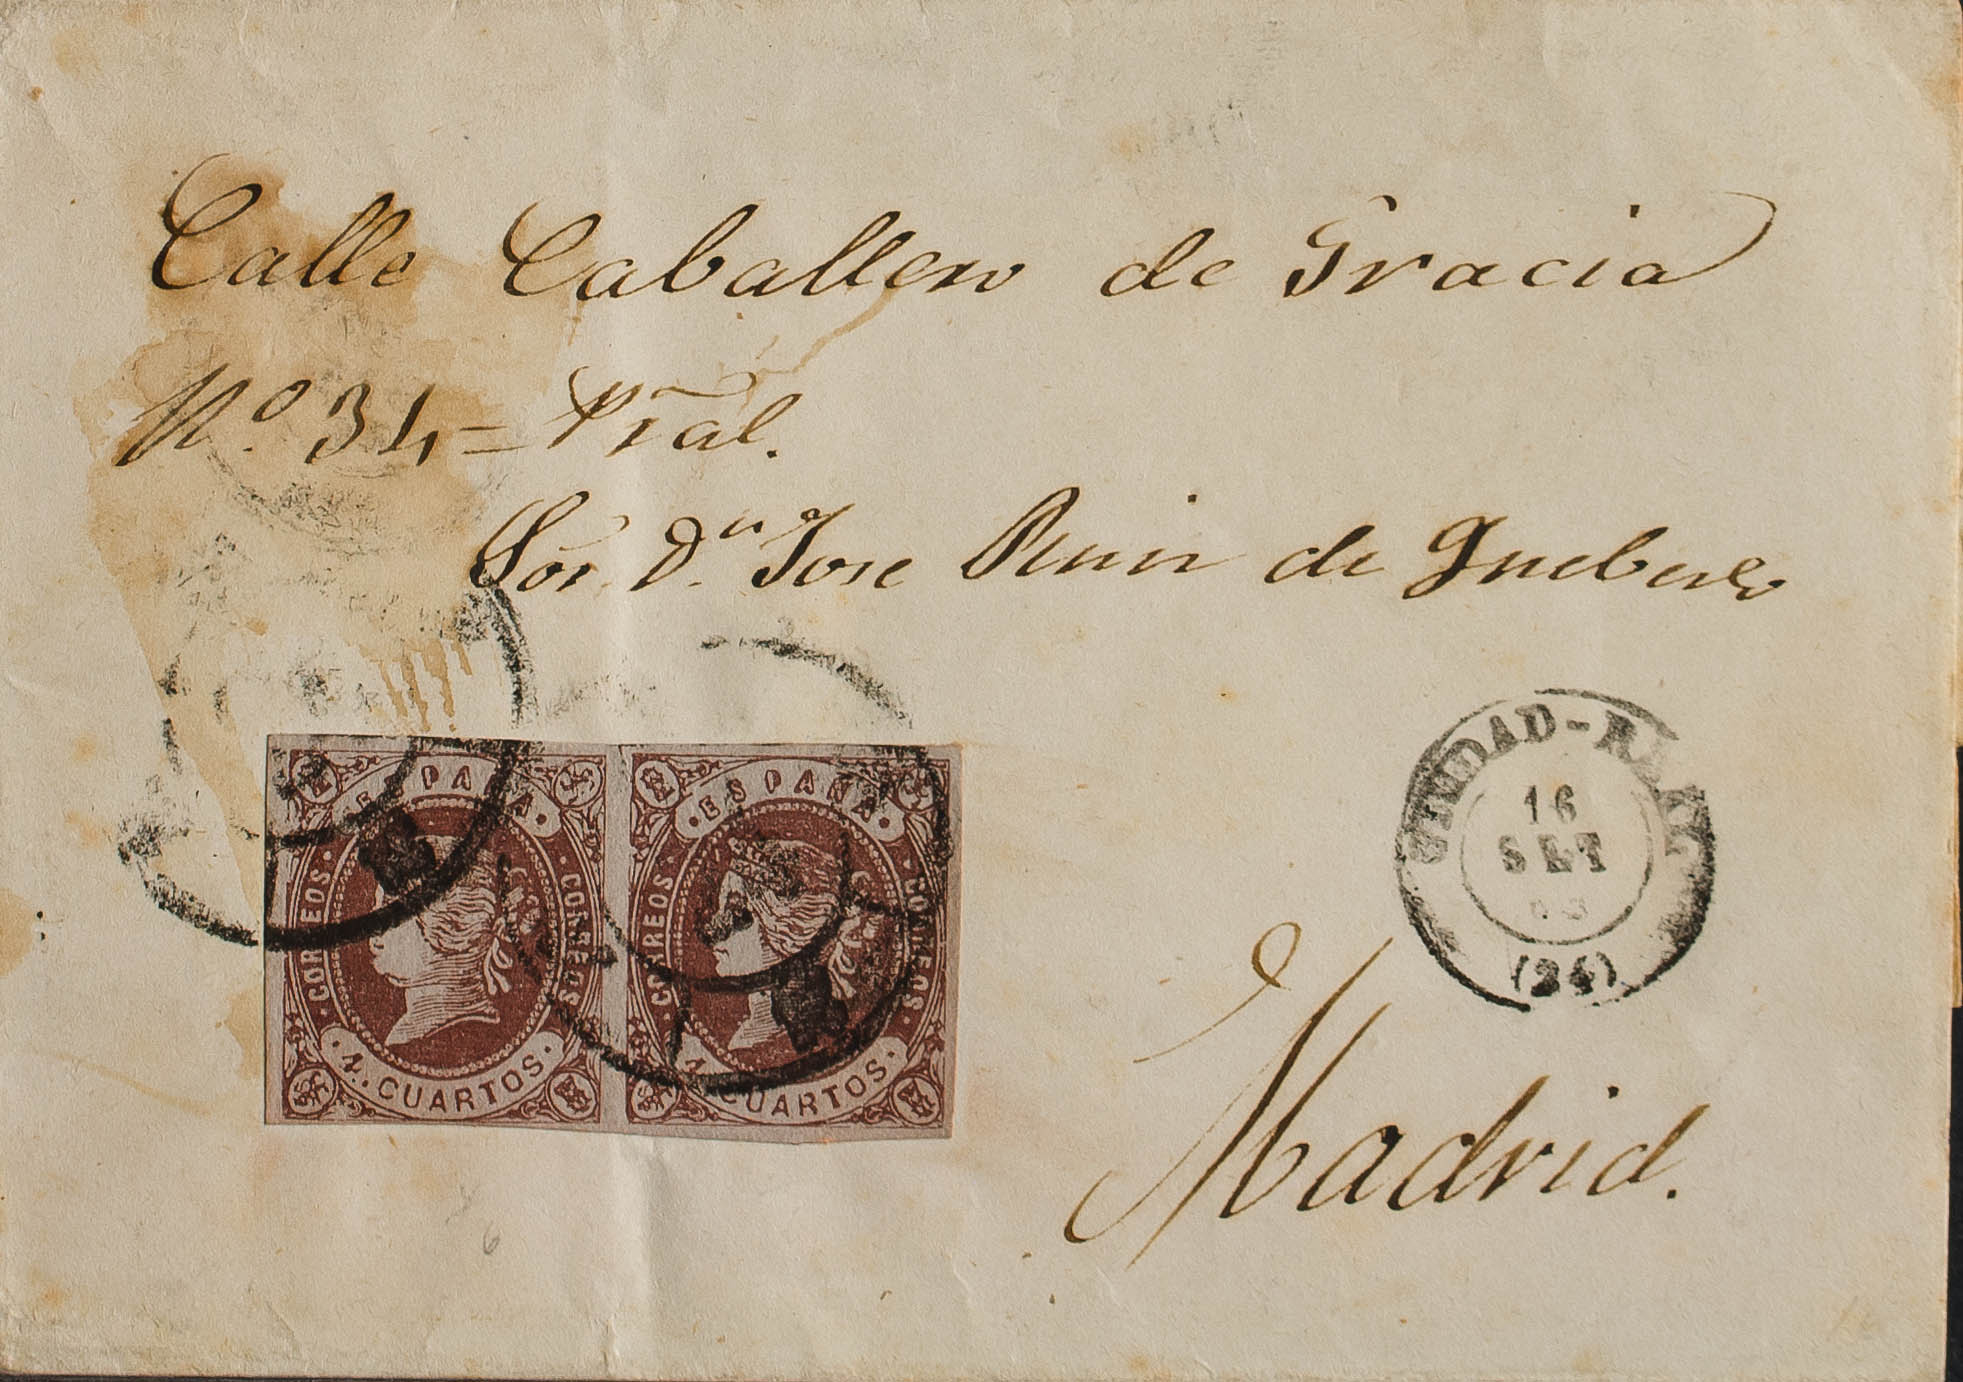 Calle Caballero de Gracia
Nº 34 = Pral.
Sor. Dn. Jose Ruiz de
ESPAÑA
CORREOS
CORREOS
4 CUARTOS
ESPAÑA
CORREOS
CORREOS
4 CUARTOS
CIUDAD-REAL
16
SET
(24)
Madrid.
6